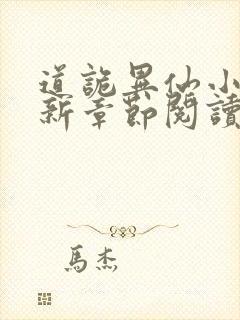 道詭異仙小
新章節閱讀
馬杰